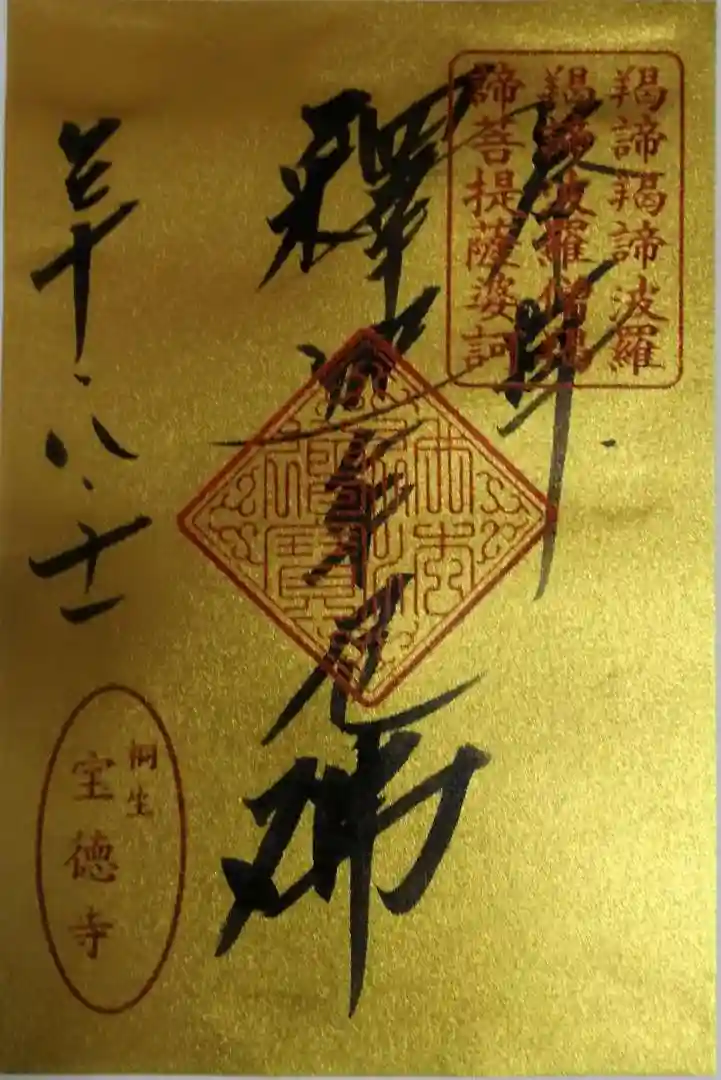 羯諦羯諦波羅
羯諦波羅僧羯
諦菩提薩婆訶
奉拝
釋迦牟尼佛
三十・八・十一
桐生
宝徳寺